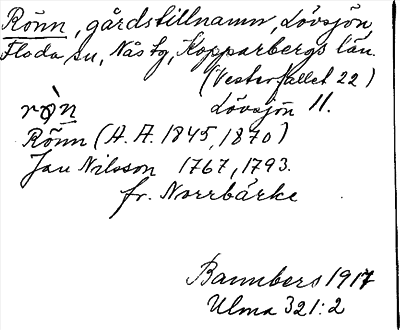 Rönn, gårdstillnamn, Lövsjön,
Floda sn, Nås tg, Kopparbergs län.
(Vesterfallet 22)
rø̀n Lövsjön 11.
Rönn (A. A. 1845, 1870)
Jan Nilsson 1767, 1793.
fr. Norrbärke
Bannbers 1917
Ulma 321:2